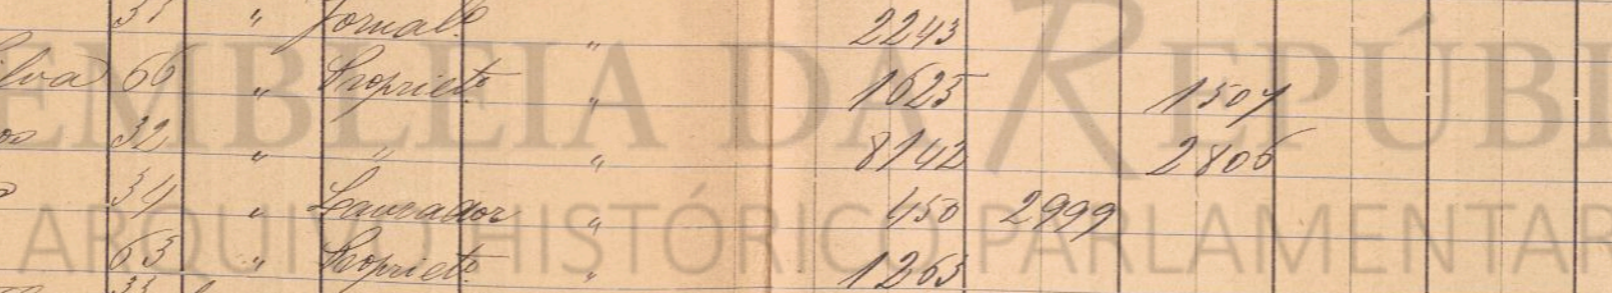 37 " Jornalº " 2243
ilva 66 " Proprietº " 1625 1507
os 32 " " " 8142 2806
34 " Lavrador " 450 2999
63 " Proprietº " 1263
33
ASSEMBLEIA DA REPÚBLI
ARQUIVO HISTÓRICO PARLAMENTAR